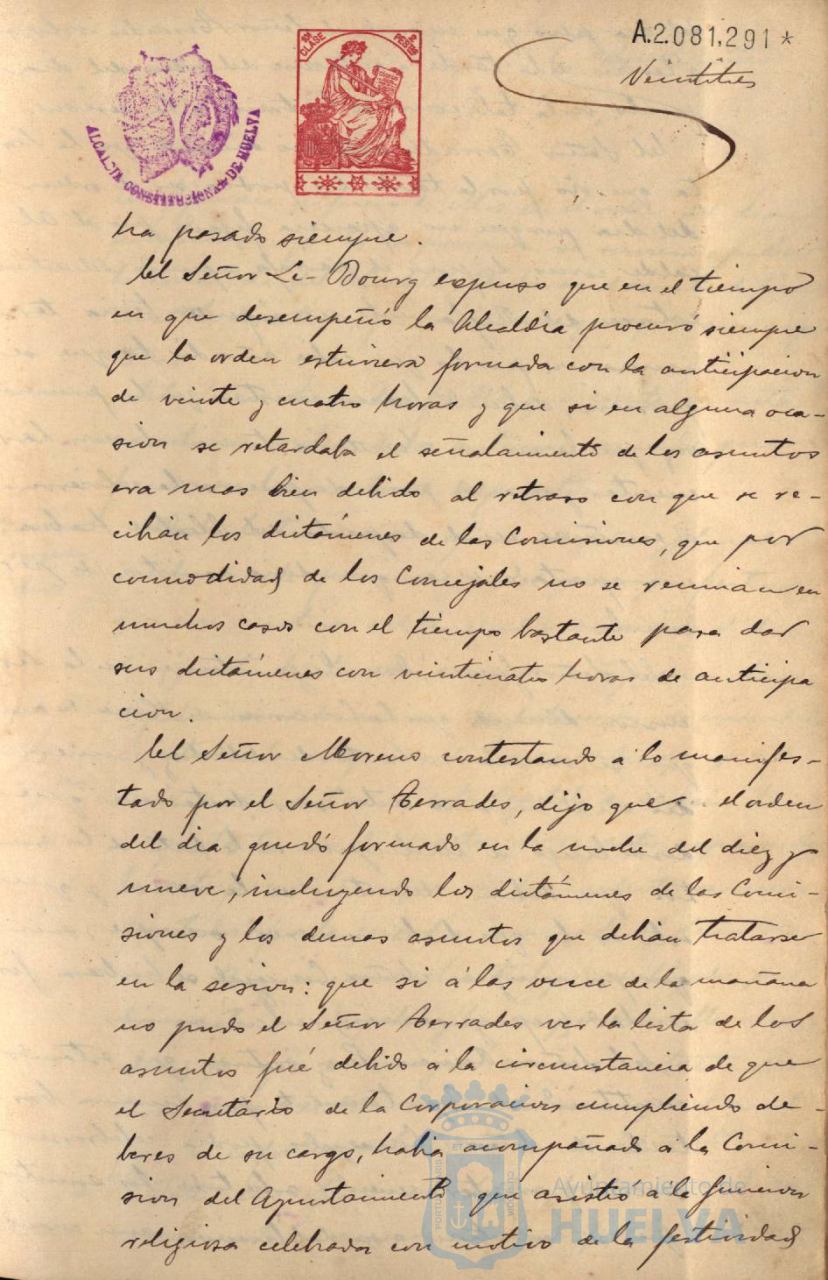 A.2.081,291*
Veintitres
1ª CLASE
PESETAS
ALCALDIA CONSTITUCIONAL DE HUELVA
ha pasado siempre.
El Señor Le-Bourg expuso que en el tiempo
en que desempeñó la Alcaldia procuró siempre
que la orden estuviera formada con la anticipacion
de veinte y cuatro horas y que si en alguna oca-
sion se retardaba el señalamiento de los asuntos
era mas bien debido al retraso con que se re-
cibian los dictámenes de las Comisiones, que por
comodidad de los Concejales no se reunian en
muchos casos con el tiempo bastante para dar
sus dictámenes con veinticuatro horas de anticipa
cion.
El Señor Moreno contestando á lo manifes-
tado por el Señor Terrades, dijo que el orden
del dia quedó formado en la noche del diez y
nueve, incluyendo los dictámenes de las Comi-
siones y los demas asuntos que debian tratarse
en la sesion: que si á las once de la mañana
no pudo el Señor Terrades ver la lista de los
asuntos fué debido á la circunstancia de que
el Secretario de la Corporacion cumpliendo de-
beres de su cargo, habia acompañado á la Comi-
sion del Ayuntamiento que asistió á la funcion
religiosa celebrada con motivo de la festividad
Ayuntamiento de
HUELVA